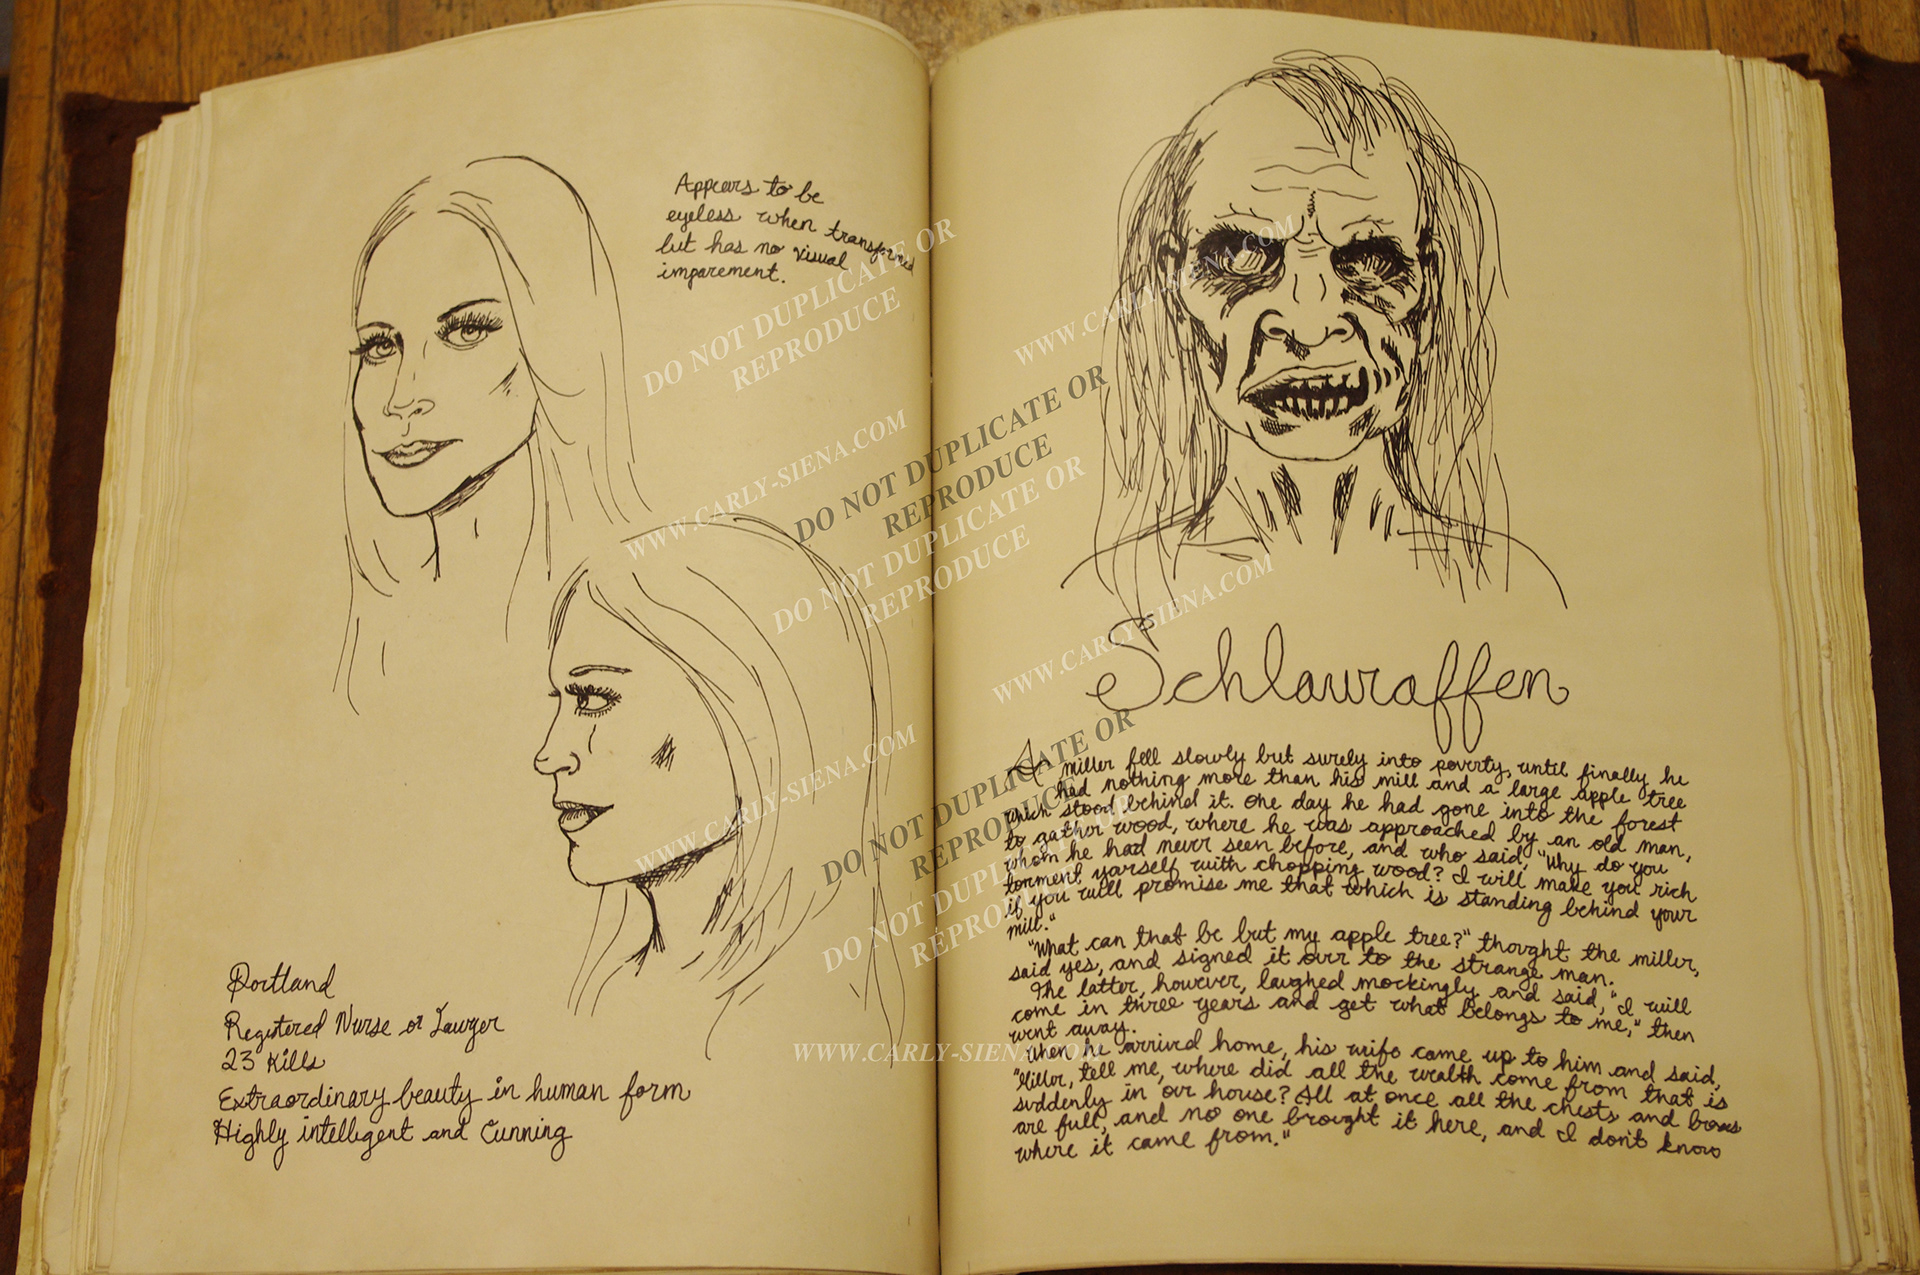 Appears to be
eyeless when transformed
but has no visual
imparement.
Portland
Registered Nurse or Lawyer
23 Kills
Extraordinary beauty in human form
Highly intelligent and Cunning
Schlauraffen
A miller fell slowly but surely into poverty, until finally he
had nothing more than his mill and a large apple tree
which stood behind it. One day he had gone into the forest
to gather wood, where he was approached by an old man,
whom he had never seen before, and who said, "Why do you
torment yourself with chopping wood? I will make you rich
if you will promise me that which is standing behind your
mill."
"What can that be but my apple tree?" thought the miller,
said yes, and signed it over to the strange man.
The latter, however, laughed mockingly and said, "I will
come in three years and get what belongs to me," then
went away.
When he arrived home, his wife came up to him and said,
"Miller, tell me, where did all the wealth come from that is
suddenly in our house? All at once all the chests and boxes
are full, and no one brought it here, and I don't know
where it came from."
DO NOT DUPLICATE OR
REPRODUCE
WWW.CARLY-SIENA.COM
DO NOT DUPLICATE OR
REPRODUCE
WWW.CARLY-SIENA.COM
DO NOT DUPLICATE OR
REPRODUCE
WWW.CARLY-SIENA.COM
WWW.CARLY-SIENA.COM
DO NOT DUPLICATE OR
REPRODUCE
DO NOT DUPLICATE OR
REPRODUCE
WWW.CARLY-SIENA.COM